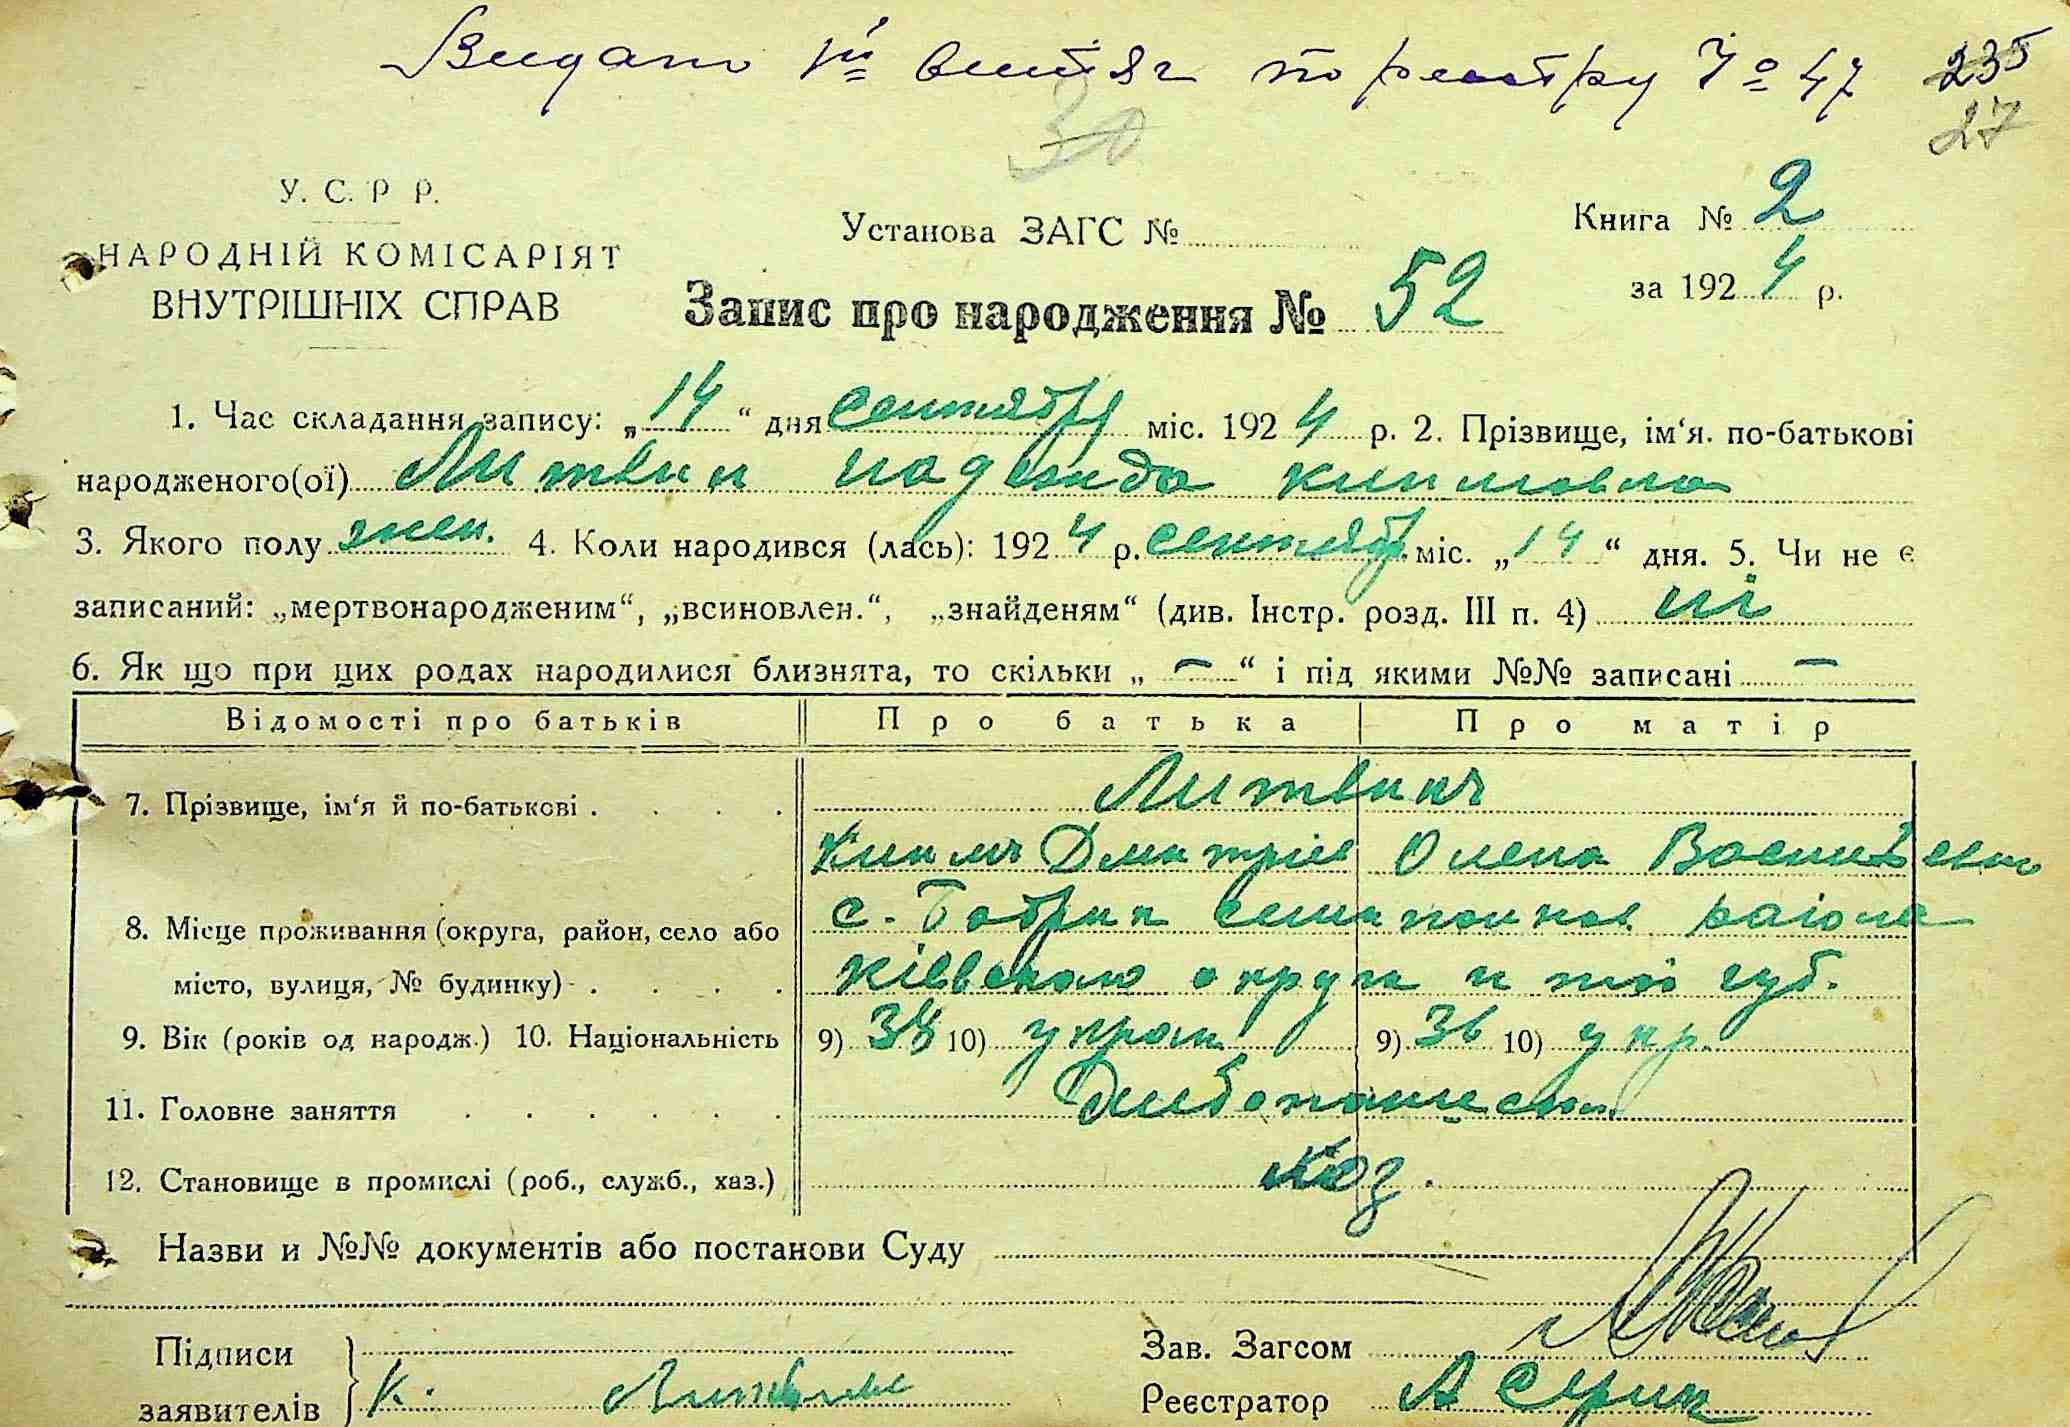 Видано витяг по реєстру № 47 235
30 27
У. С. Р Р.
НАРОДНІЙ КОМІСАРІЯТ
ВНУТРІШНІХ СПРАВ
Установа ЗАГС №
Книга № 2
за 1924 р.
Запис про народження № 52
1. Час складання запису: „14“ дня сентября міс. 1924 р. 2. Прізвище, ім‘я. по-батькові
народженого(ої) Литвин Надежда
3. Якого полу жен. 4. Коли народився (лась): 1924 р. сентябр. міс. „14“ дня. 5. Чи не є
записаний: „мертвонародженим“, „всиновлен.“, „знайденям“ (див. Інстр. розд. III п. 4) ні
6. Як що при цих родах народилися близнята, то скільки „—“ і під якими №№ записані —
Відомості про батьків Про батька Про матір
7. Прізвище, ім‘я й по-батькові . . . . Литвин
Дмитрієв Олена
8. Місце проживання (округа, район, село або с. Бобрик району
місто, вулиця, № будинку) . . . . округи и той губ.
9. Вік (років од народж.) 10. Національність 9) 38 10) україн. 9) 36 10) укр.
11. Головне заняття . . . . . .
12. Становище в промислі (роб., служб., хаз.) хоз.
Назви и №№ документів або постанови Суду
Підписи
заявителів К. Литвин
Зав. Загсом
Реєстратор А Сірик